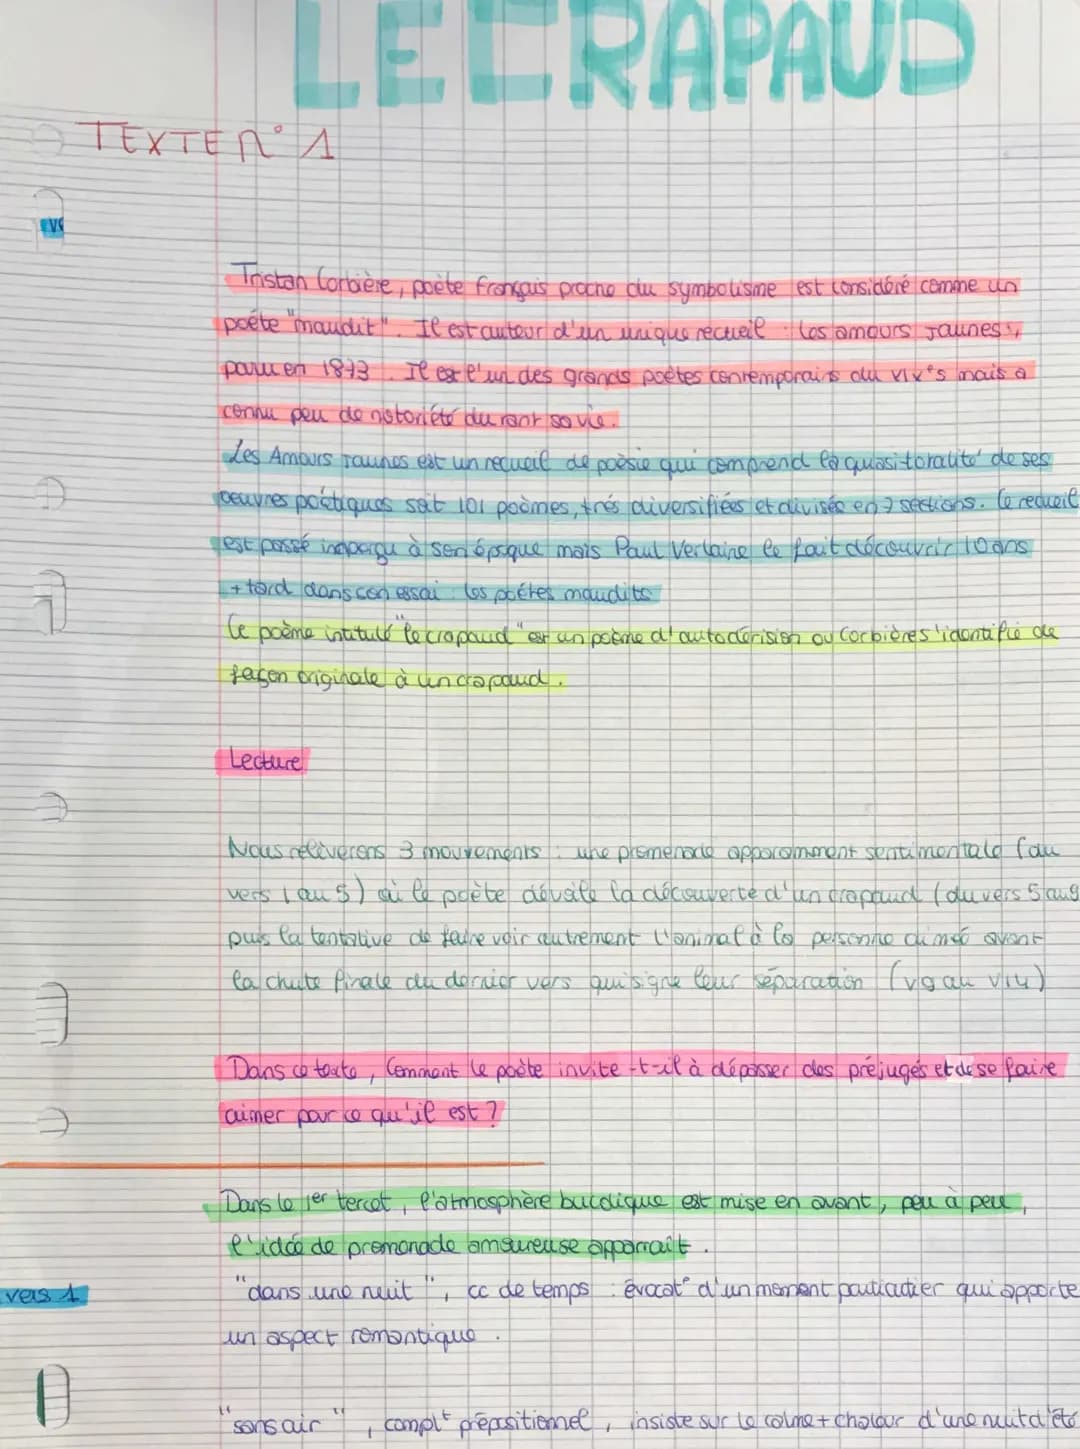 LE CRAPAUD
TEXTE n° 1
Tristan Corbière, poète français proche du symbolisme est considéré comme un
poète "maudit". Il est auteur d'un unique recueil : Les amours Jaunes,
paru en 1873. Il est l'un des grands poètes contemporains du XIX°s mais a
connu peu de notoriété durant sa vie.
Les Amours Jaunes est un recueil de poésie qui comprend la quasi totalité de ses
oeuvres poétiques soit 101 poèmes, très diversifiées et divisée en 7 sections. Ce recueil
est passé inaperçu à son époque mais Paul Verlaine le fait découvrir 10 ans
+ tard dans son essai : les poètes maudits
Ce poème intitulé "le crapaud" est un poème d'autodérision ou Corbière s'identifie de
façon originale à un crapaud.
Lecture
Nous relèverons 3 mouvements : une promenade apparemment sentimentale (du
vers 1 au 5) où le poète dévoile la découverte d'un crapaud (du vers 5 au 9
puis la tentative de faire voir autrement l'animal à la personne aimée avant
la chute finale du dernier vers qui signe leur séparation (v9 au v14)
Dans ce texte, Comment le poète invite-t-il à dépasser des préjugés et de se faire
aimer pour ce qu'il est ?
Dans le 1er tercet, l'atmosphère bucolique est mise en avant, peu à peu,
l'idée de promenade amoureuse apparait.
vers 1 "dans une nuit", cc de temps : évocat° d'un moment particulier qui apporte
un aspect romantique.
"sans air", complt prépositionnel, insiste sur le calme + chaleur d'une nuit d'été